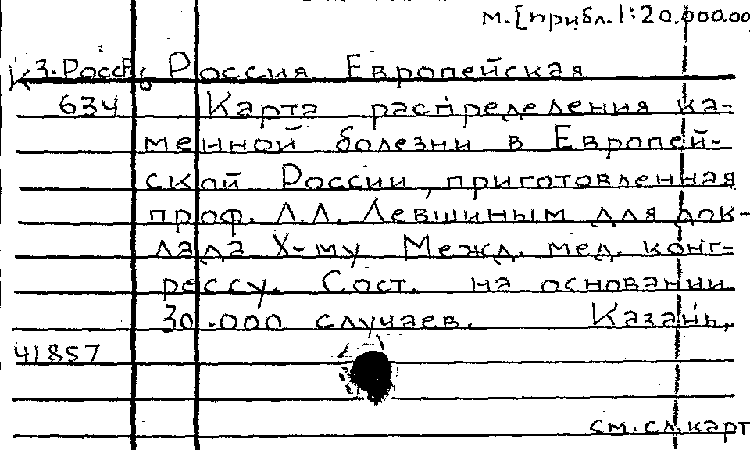 м. [прибл. 1:20.000.00
К3.Росс Россия Европейская
634 Карта распределения ка-
менной болезни в Европей-
ской России, приготовленная
проф. Л.Л. Левшиным для док-
лада X-му Межд. мед. конг-
рессу. Сост. на основании
30.000 случаев. Казань,
41857
см. сл. карт